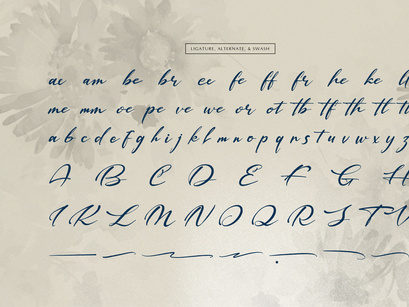 LIGATURE, ALTERNATE, & SWASH
ae am be br ee fe ff fr he ke
me mm oe pe ve we or ot tb tf th tl
a b c d e f g h i j k l m n o p q r s t u v w x y z
A B C D E F G H
I K L M N O Q R S T V